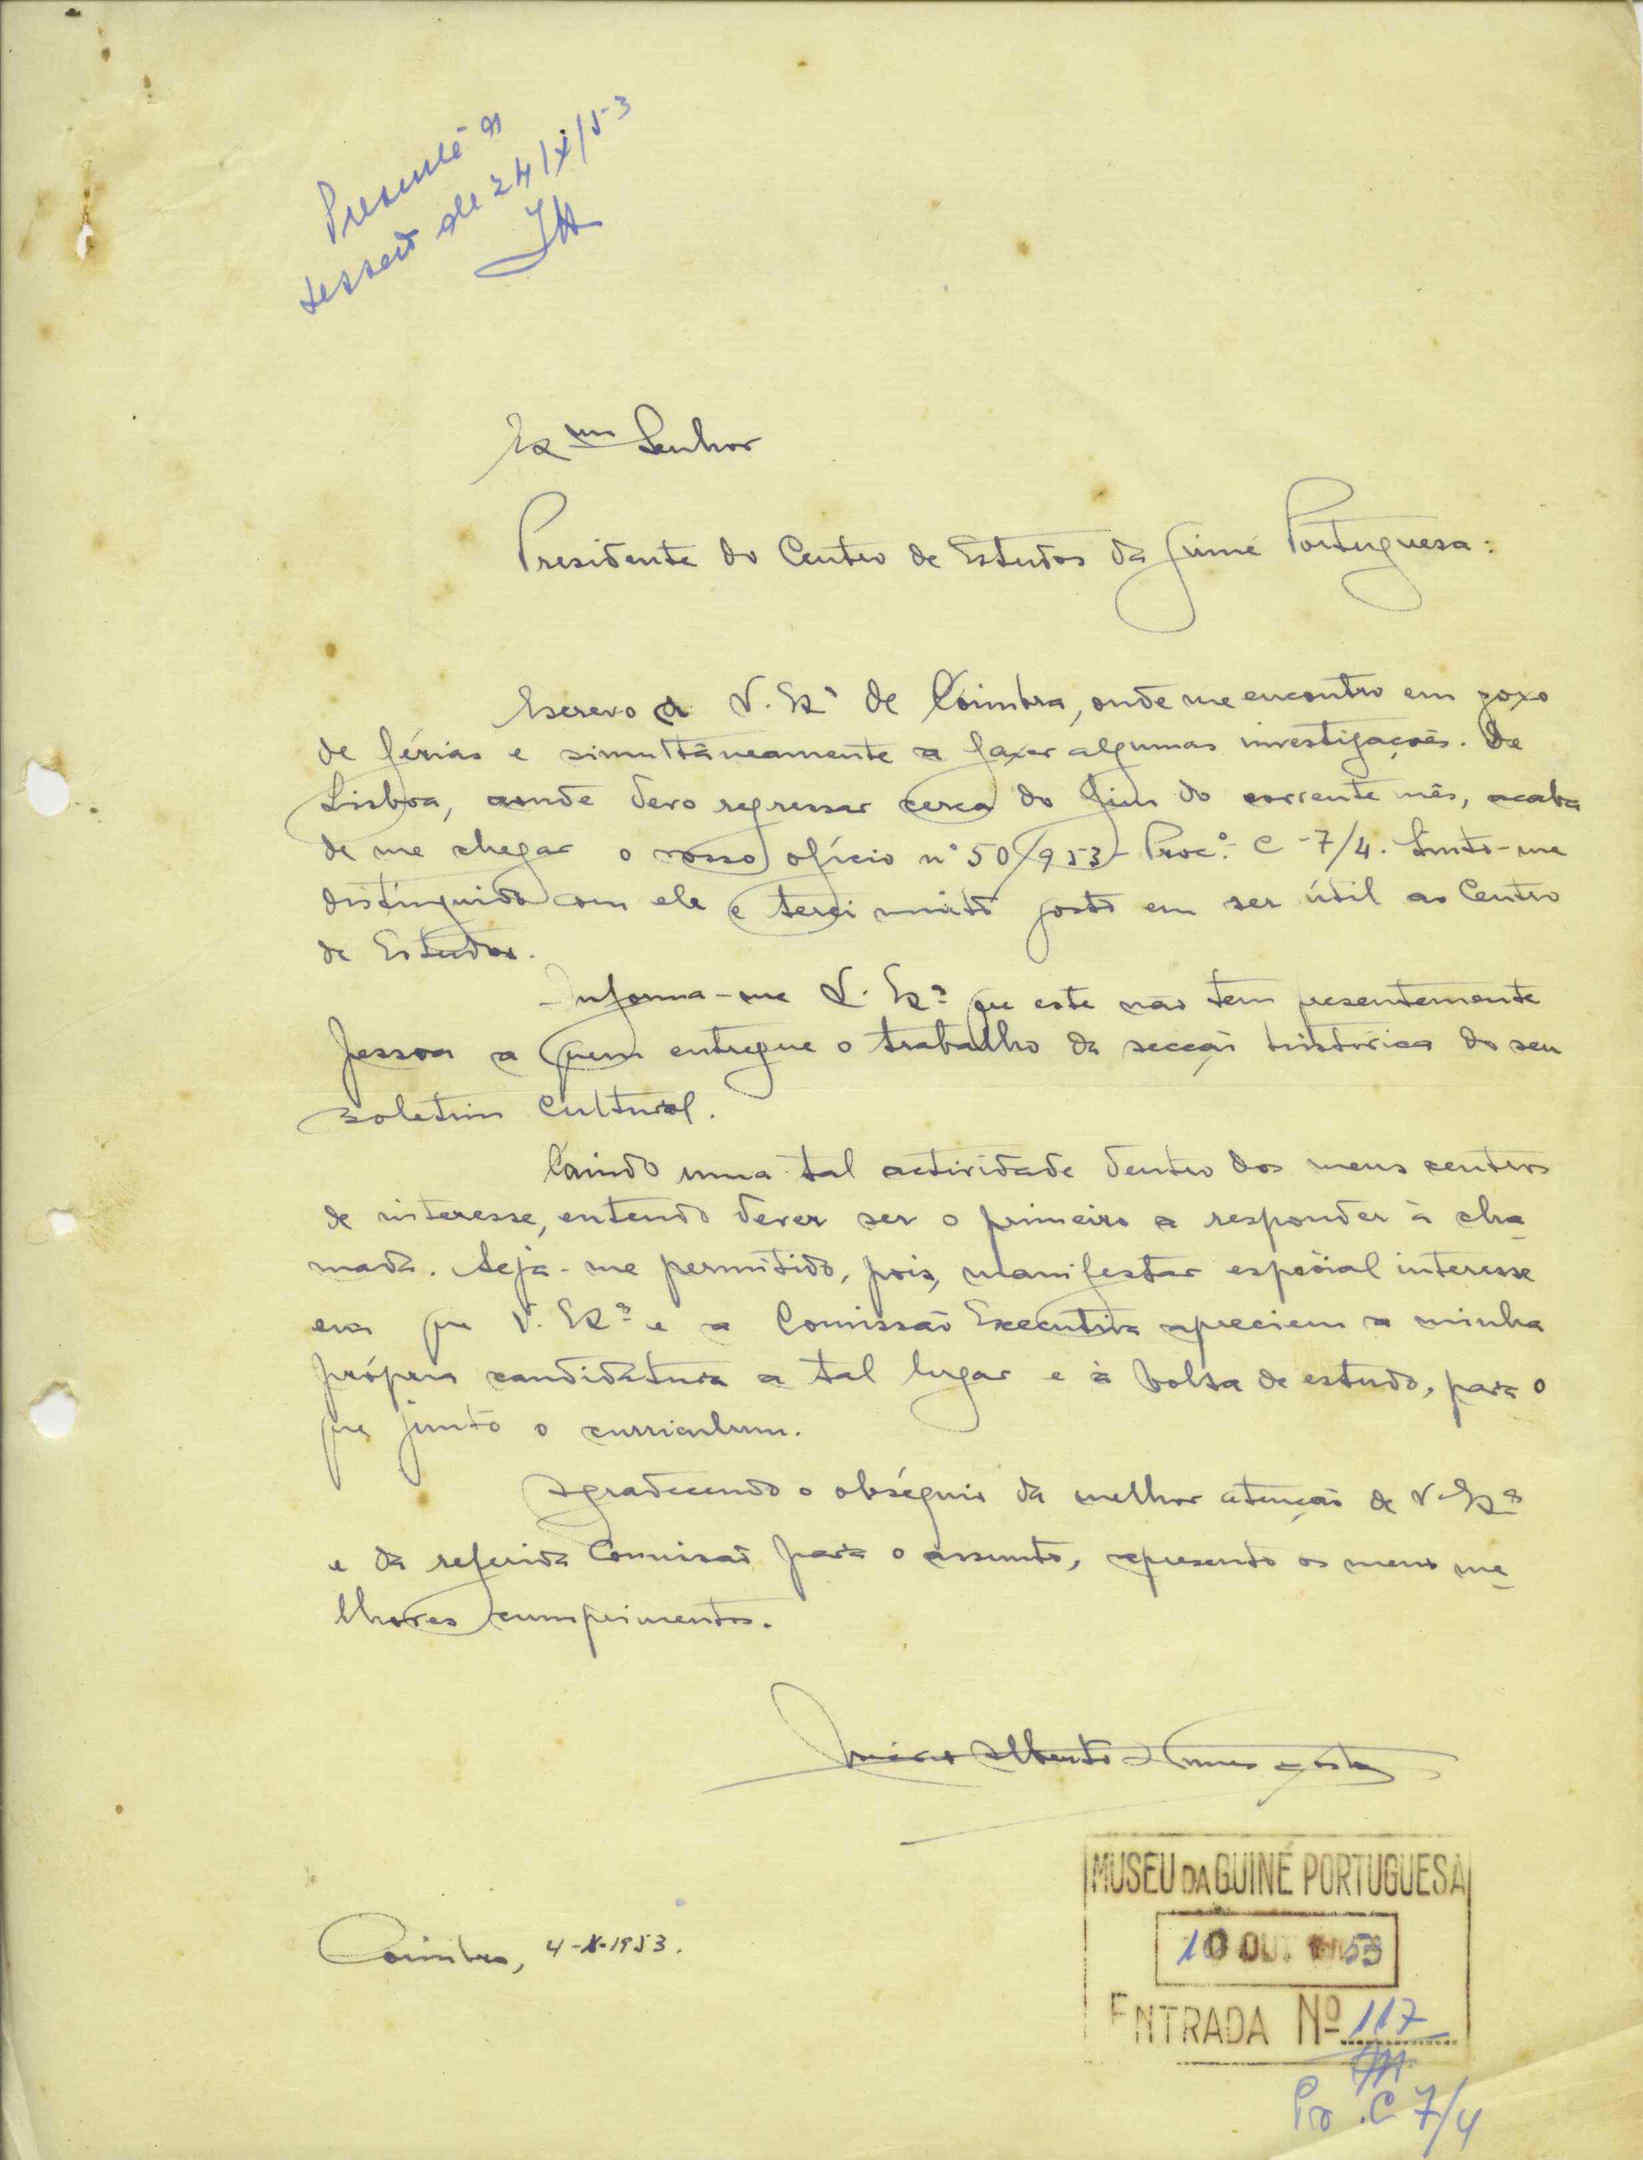 Presente à
sessão de 24/X/53
Exmo Senhor
Presidente do Centro de Estudos da Guiné Portuguesa:
Escrevo a V. Exª de Coimbra, onde me encontro em gozo
de férias e simultâneamente a fazer algumas investigações. De
Lisboa, aonde devo regressar cerca do fim do corrente mês, acaba
de me chegar o vosso ofício nº 50/953 - Proc.º C-7/4. Sinto-me
distinguido com ele e terei muito gosto em ser útil ao Centro
de Estudos.
Informa-me V. Exª que este não tem presentemente
pessoa a quem entregue o trabalho da secção histórica do seu
Boletim Cultural.
Caindo uma tal actividade dentro dos meus centros
de interesse, entendo dever ser o primeiro a responder à cha-
mada. Seja-me permitido, pois, manifestar especial interesse
em que V. Exª e a Comissão Executiva apreciem a minha
própria candidatura a tal lugar e à bolsa de estudo, para o
que junto o curriculum.
Agradecendo o obséquio da melhor atenção de V. Exª
e da referida Comissão para o assunto, apresento os meus me-
lhores cumprimentos.
Mário Alberto Nunes Costa
MUSEU DA GUINÉ PORTUGUESA
10 OUT 1953
ENTRADA Nº 117
Coimbra, 4-X-1953.
Pro .C 7/4